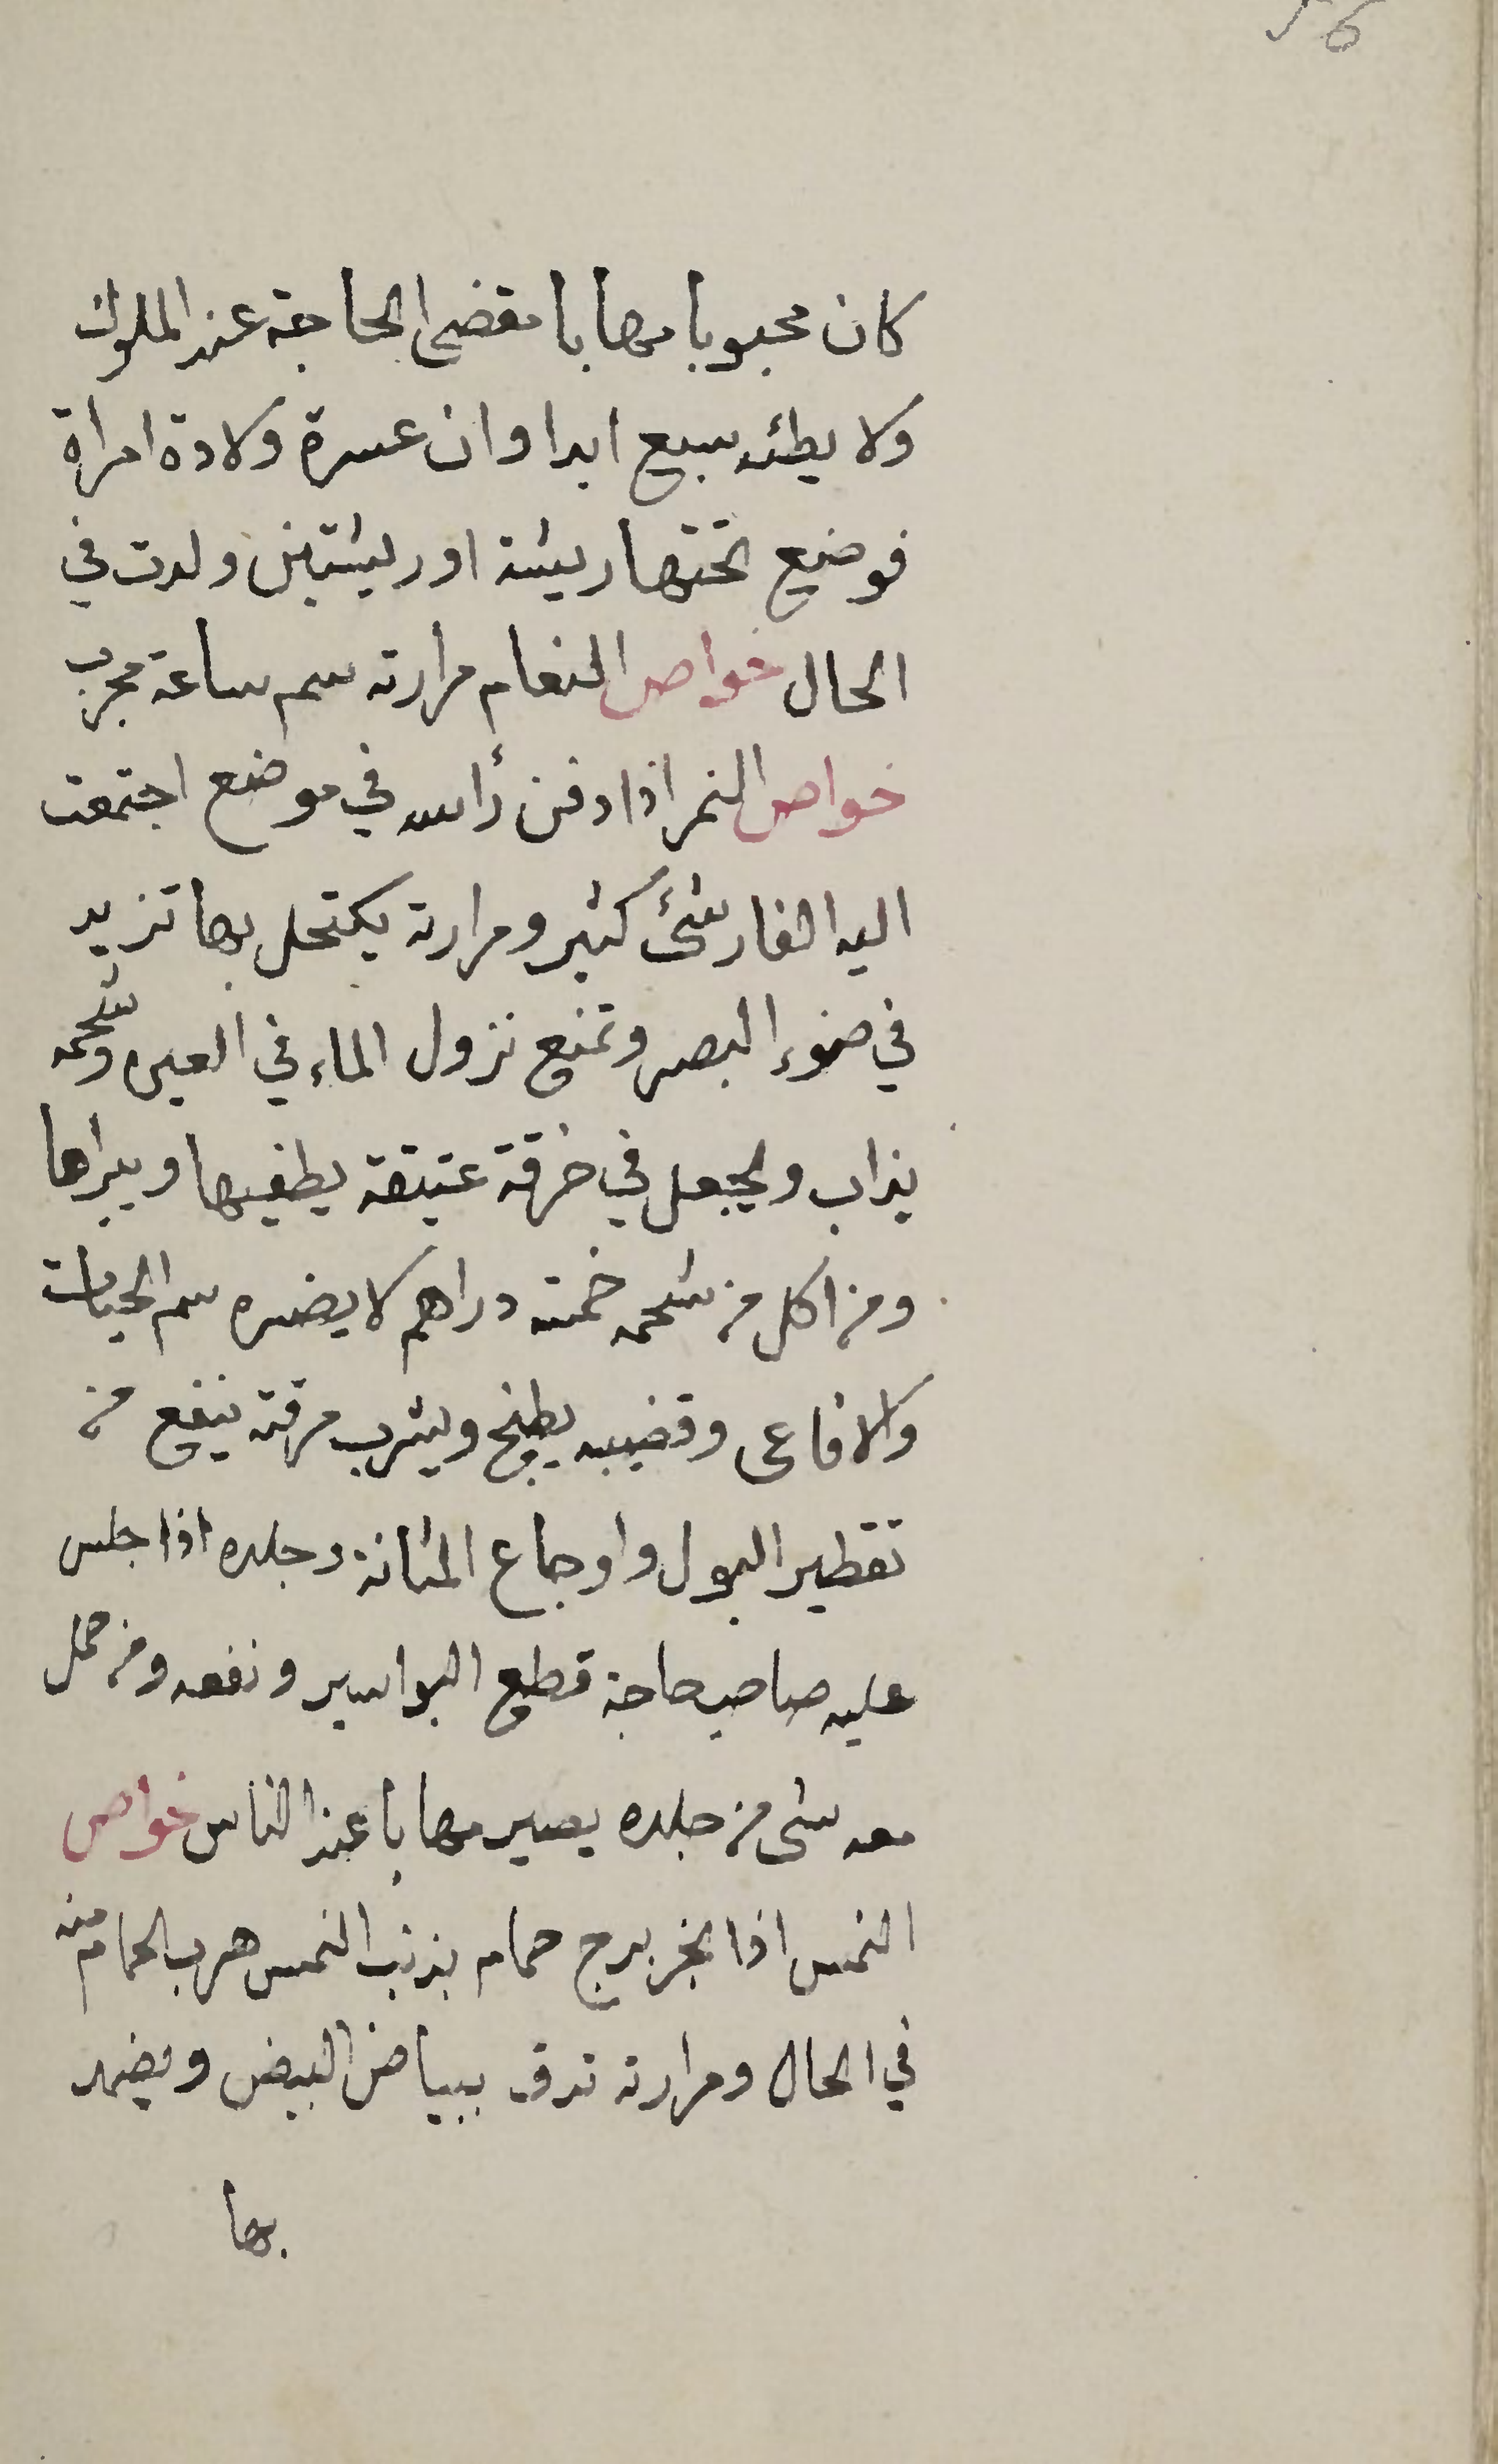 56
كان محبوبا مهابا مقضى الحاجة عند الملوك
ولا يطئه سبع ابدا وان عسرة ولادة امراة
فوضع تحتها ريشة او ريشتين ولدت في
الحال خواص النعام مرارته سم ساعة مجرب
خواص النمر اذا دفن رأسه في موضع اجتمعت
اليه الفار شئ كثير ومرارته يكتحل بها تزيد
في ضوء البصر وتمنع نزول الماء في العين وشحمه
يذاب ويجعل في خرقة عتيقة يطفيها ويبراها
ومن اكل من شحمه خمسة دراهم لا يضره سم الحيات
والافاعى وقضيبه يطبخ ويشرب مرقته ينفع من
تقطير البول واوجاع المثانة وجلده اذا جلس
عليه صاحب حاجة قطع البواسير ونفعه ومن حمل
معه شى من جلده يصير مهابا عند الناس خواص
النمس اذا بخر برج حمام بذنب النمس هرب الحمام منه
في الحال ومرارته تدق ببياض البيض ويضمد
بها